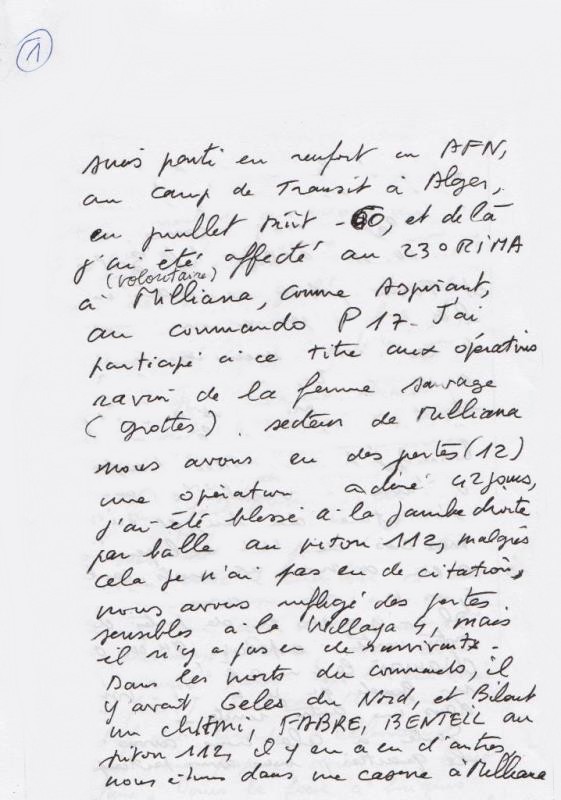 1
suis parti en renfort en AFN,
au camp de Transit à Alger,
en juillet Août - 60, et de là
j'ai été affecté au 23 0 RIMA
(volontaire)
à Milliana, comme Aspirant,
au commando P 17. J'ai
participé à ce titre aux opérations
ravin de la femme sauvage
(grottes). secteur de Milliana
nous avons eu des pertes (12)
une opération a duré 42 jours,
j'ai été blessé à la jambe droite
par balle au piton 112, malgrès
cela je n'ai pas eu de citation,
nous avons infligé des pertes
sensibles à la Willaya 4, mais
il n'y a pas eu de survivants.
Dans les morts du commando, il
y avait Geles du Nord, et Bilout
un chtimi, FABRE, BENTEIL au
piton 112, il y en a eu d'autres,
nous étions dans une caserne à Milliana